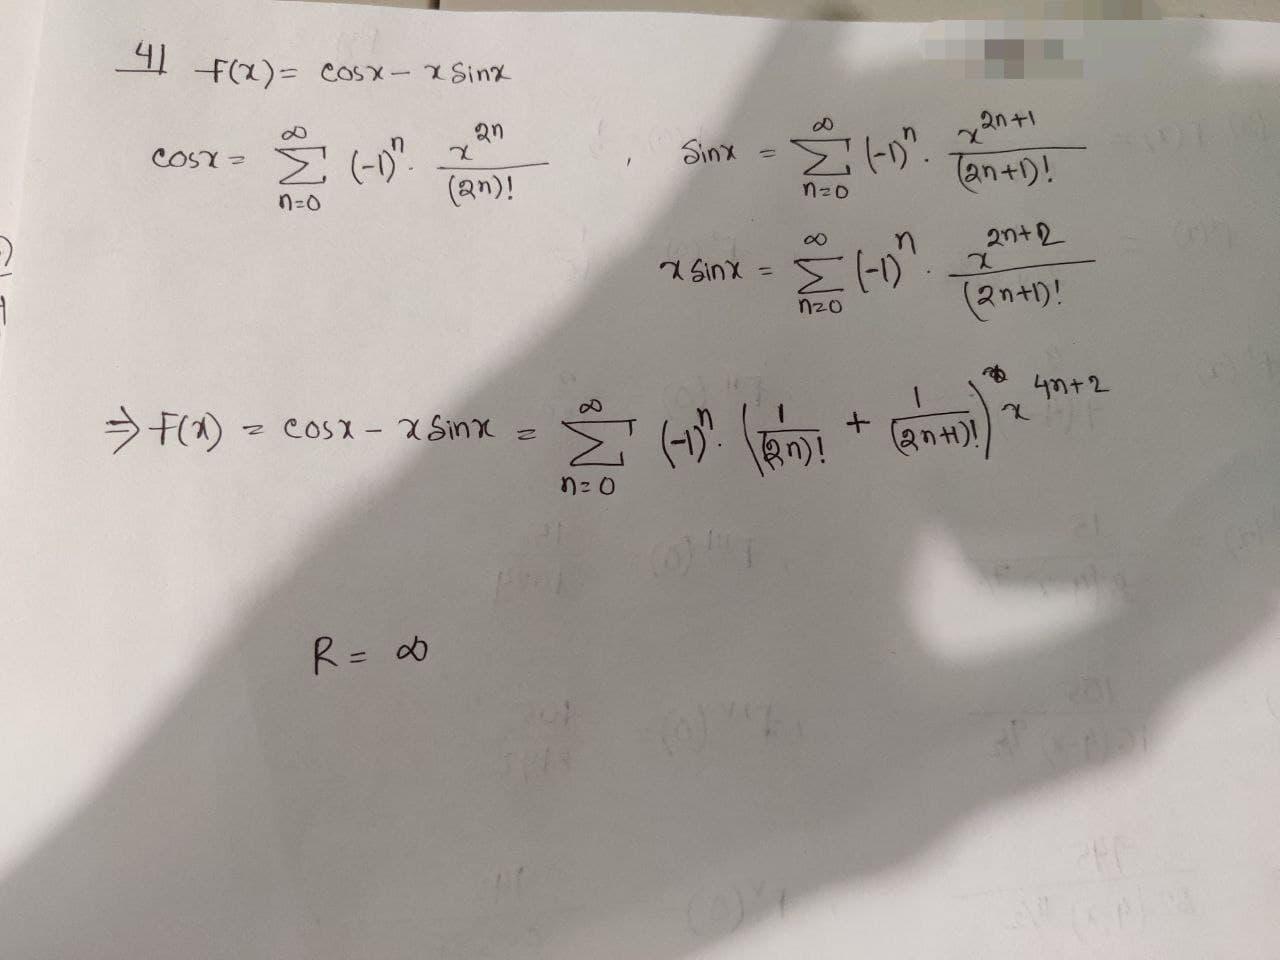 41 f(x) = cosx - x sinx
cosx = ∞ Σ n=0 (-1)^n . x^{2n} / (2n)! , Sinx = ∞ Σ n=0 (-1)^n . x^{2n+1} / (2n+1)!
x sinx = ∞ Σ n=0 (-1)^n . x^{2n+2} / (2n+1)!
⇒ f(x) = cosx - x sinx = ∞ Σ n=0 (-1)^n . (1 / (2n)! + 1 / (2n+1)!) x^{4n+2}
R = ∞